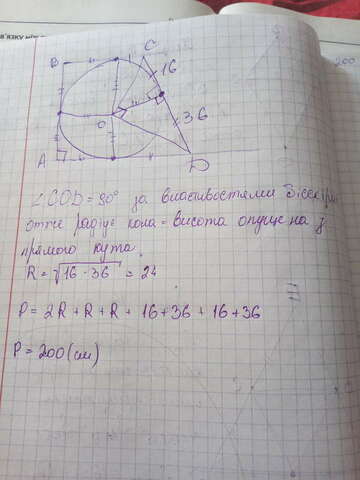 в'язку
B
C
16
O
36
A
D
∠COD = 90° за властивостями бісектрис
отже радіус кола = висота опущена з
прямого кута.
R = √16 · 36 = 24
P = 2R + R + R + 16 + 36 + 16 + 36
P = 200 (см)